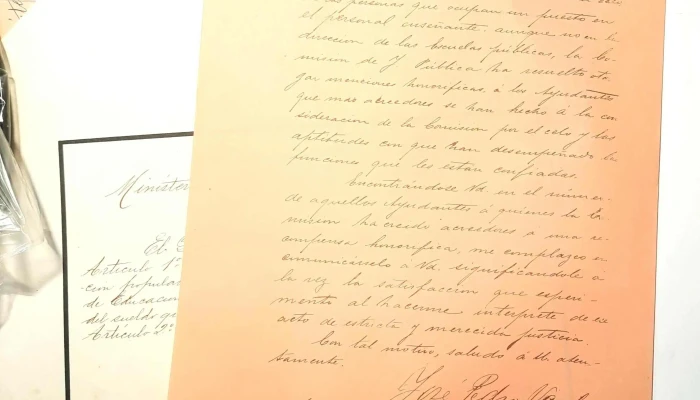 personas que ocupan un puesto en
el personal enseñante: aunque no en la
direccion de las Escuelas públicas, la Co-
mision de I. Pública ha resuelto otor-
gar menciones honoríficas, á los Ayudantes
que mas acreedores se han hecho á la con
sideracion de la Comision por el celo y las
aptitudes con que han desempeñado las
funciones que les estan confiadas.
Encontrándose Vd. en el número
de aquellos Ayudantes á quienes la Co-
mision ha creido acreedores á una re-
compensa honorífica, me complazco en
comunicárselo á Vd. significándole á
la vez la satisfaccion que esperi-
mento al hacerme interprete de ese
acto de estricta y merecida justicia.
Con tal motivo, saludo á Vd. aten-
tamente.
José Pedro
Minister
El
Artículo 1º
con popular
de Educacion
del sueldo que
Artículo 2º